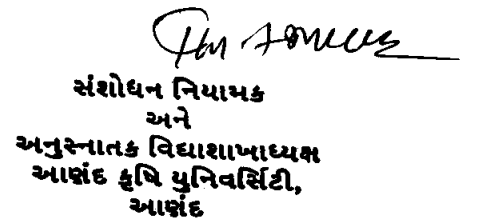 સંશોધન નિયામક
અને
અનુસ્નાતક વિદ્યાશાખાધ્યક્ષ
આણંદ કૃષિ યુનિવર્સિટી,
આણંદ